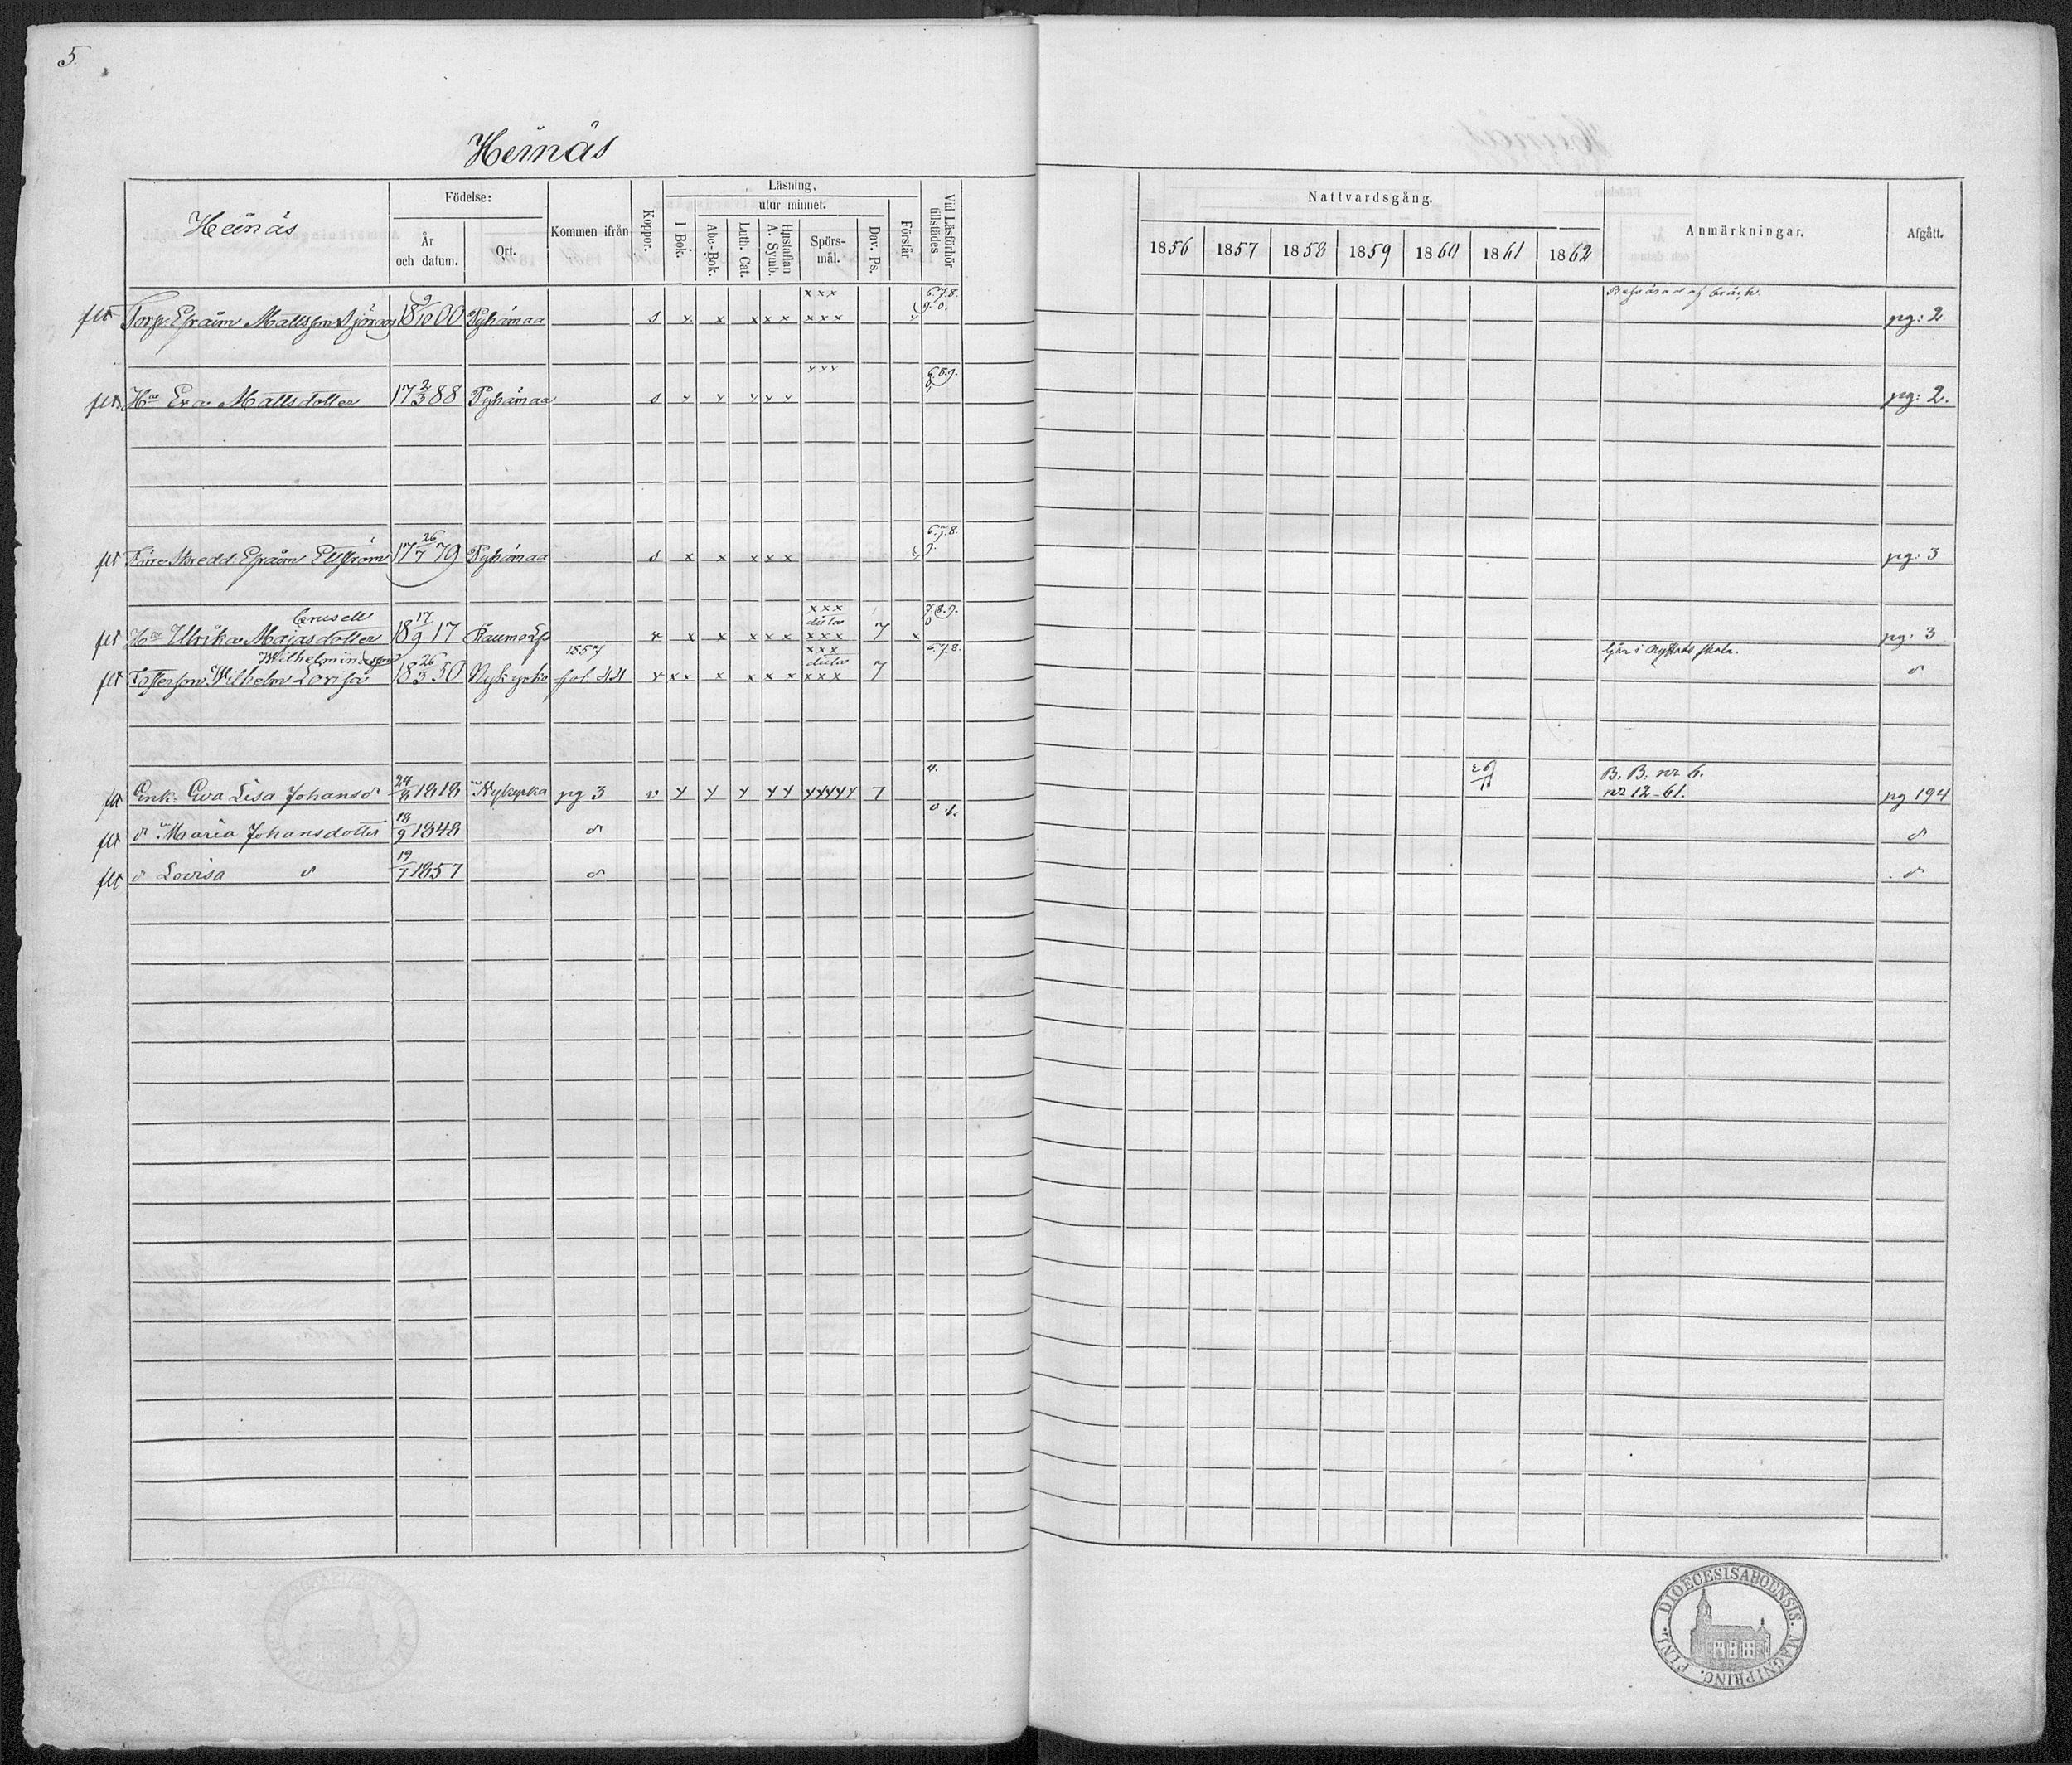 5.
Heinäs
Heinäs
Födelse:
År och datum.
Ort.
Kommen ifrån
Koppor.
Läsning,
I Bok.
utur minnet.
Abc-Bok.
Luth. Cat.
Hustaflan A. Symb.
Spörs-mål.
Dav. Ps.
Förstår
Vid Läsförhör tillstädes
Nattvardsgång.
1856 1857 1858 1859 1860 1861 1862
Anmärkningar.
Afgått.
x x x 6.7.8.
flt Torp. Efraim Mattsson 18 9/10 00 Pyhämaa s x x x x x x x x 9.0. pg: 2
x x x 6.8.9.
flt Hu Eva Mattsdotter 17 2/3 88 Pyhämaa s x x x x x 0. pg: 2.
6.7.8.
flt Efraim Ellström 17 26/7 79 Pyhämaa s x x x x x 9. pg: 3
Crusell x x x 7.8.9.
dito 0
flt Hu Ulrika Majasdotter 18 17/9 17 Raumo v x x x x x x x x 7 x pg: 3
Wilhelmina 1857 x x x 6.7.8. i Nystads skola.
dito
flt Fosterson Wilhelm Lovisa 18 26/3 50 Nykyrko fol. 44 v x x x x x x x x x 7 d
9. 26/10 B. B. nr 6.
flt Enk. Eva Lisa Johansd 24/8 1818 Nykyrka pg 3 v x x x x x x x x x x 7 nr 12-61. pg 194
0.1.
flt d Maria Johansdotter 18/9 1848 d d
flt d Lovisa d 19/1 1857 d d
DIOECESIS ABOENSIS. MAGNI PRINC. FINL.